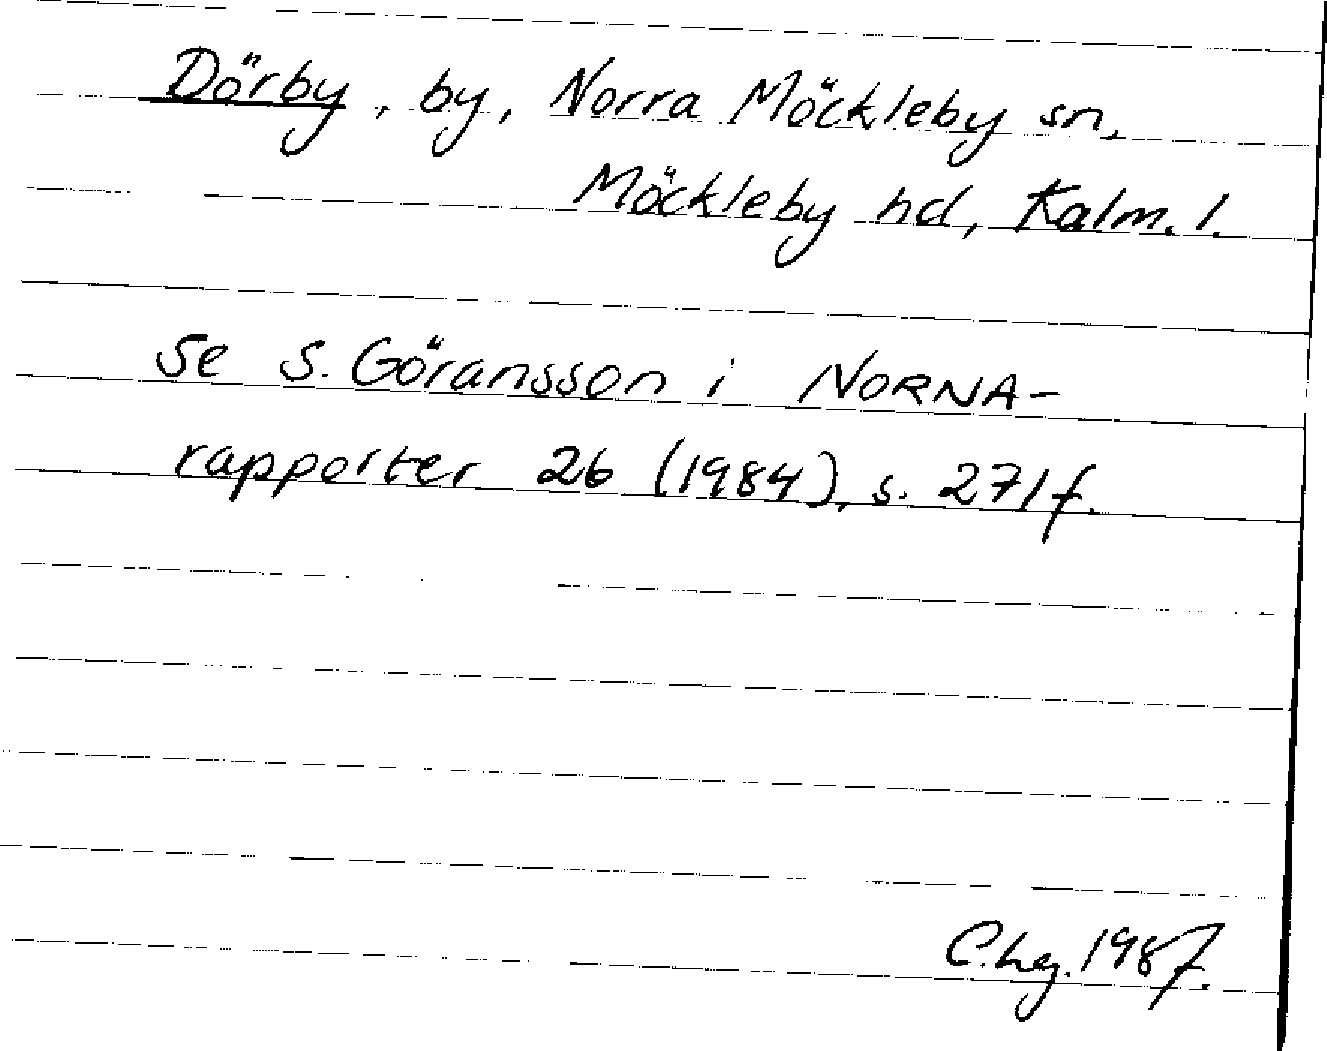 Dörby, by, Norra Möckleby sn,
Möckleby hd, Kalm. l.
Se S. Göransson i NORNA-
rapporter 26 (1984), s. 271f.
1987.